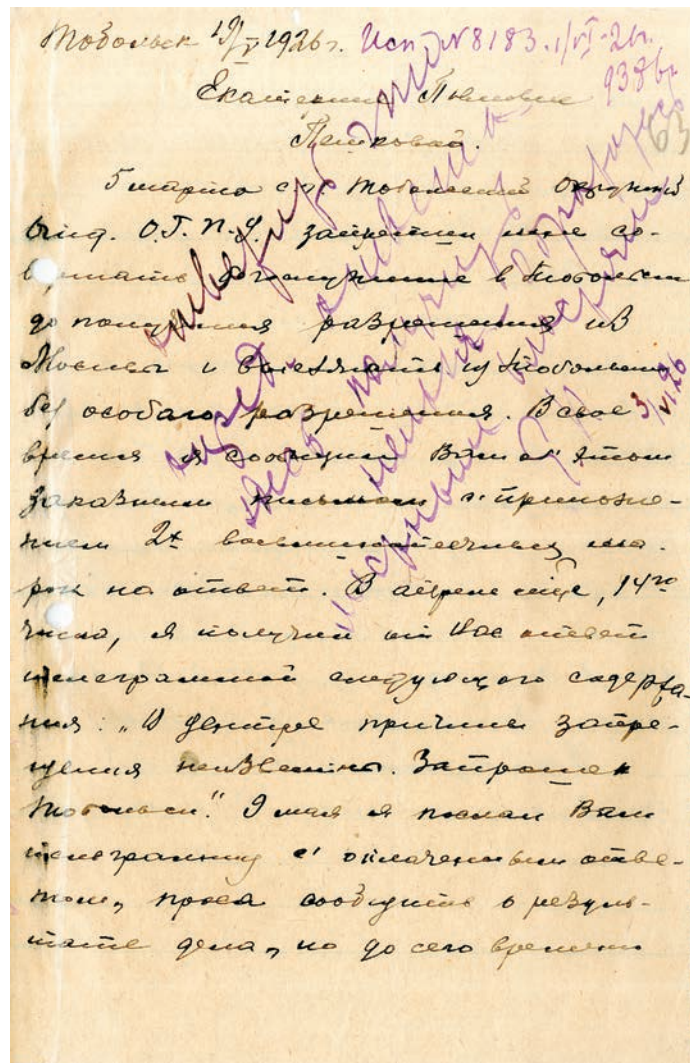 Тобольск 19/V 1926 г. Исп. № 8183. 1/VI-26 г.
938 бр
63
Екатерине Павловне
Пешковой.
5 марта с.г. Тобольский Окружной
Отд. О.Г.П.У. запретил мне со-
вершать богослужение в Тобольске
до получения разрешения из
Москвы и выезжать из Тобольска
без особого разрешения. В свое
3/VI 26
время я сообщил Вам об этом
заказным письмом с приложе-
нием 2х восьмикопеечных ма-
рок на ответ. В апреле сице, 14го
числа, я получил от Вас ответ
телеграммой следующего содержа-
ния: „В центре причина запре-
щения неизвестна. Запрошен
Тобольск." 9 мая я послал Вам
телеграмму с оплаченным отве-
том, прося сообщить о резуль-
тате дела, но до сего времени